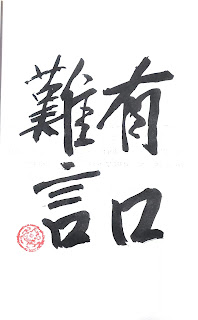 有口
難言